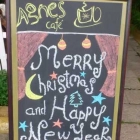 Agnes
Cafe
Merry
Christmas
and Happy
New Year